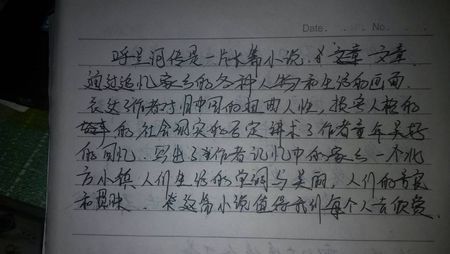 Date. No.
呼兰河传是一片长篇小说. 文章 文章
通过追忆家乡的各种人物和生活的画面
表达了作者对旧中国的扭曲人性,损害人格的
的社会现实的否定讲术了作者童年美好
的回忆. 写出了当作者记忆中的家乡一个北
方小镇人们生活的单调与美丽,人们的善良
和愚昧. 这篇小说值得我们每个人去欣赏